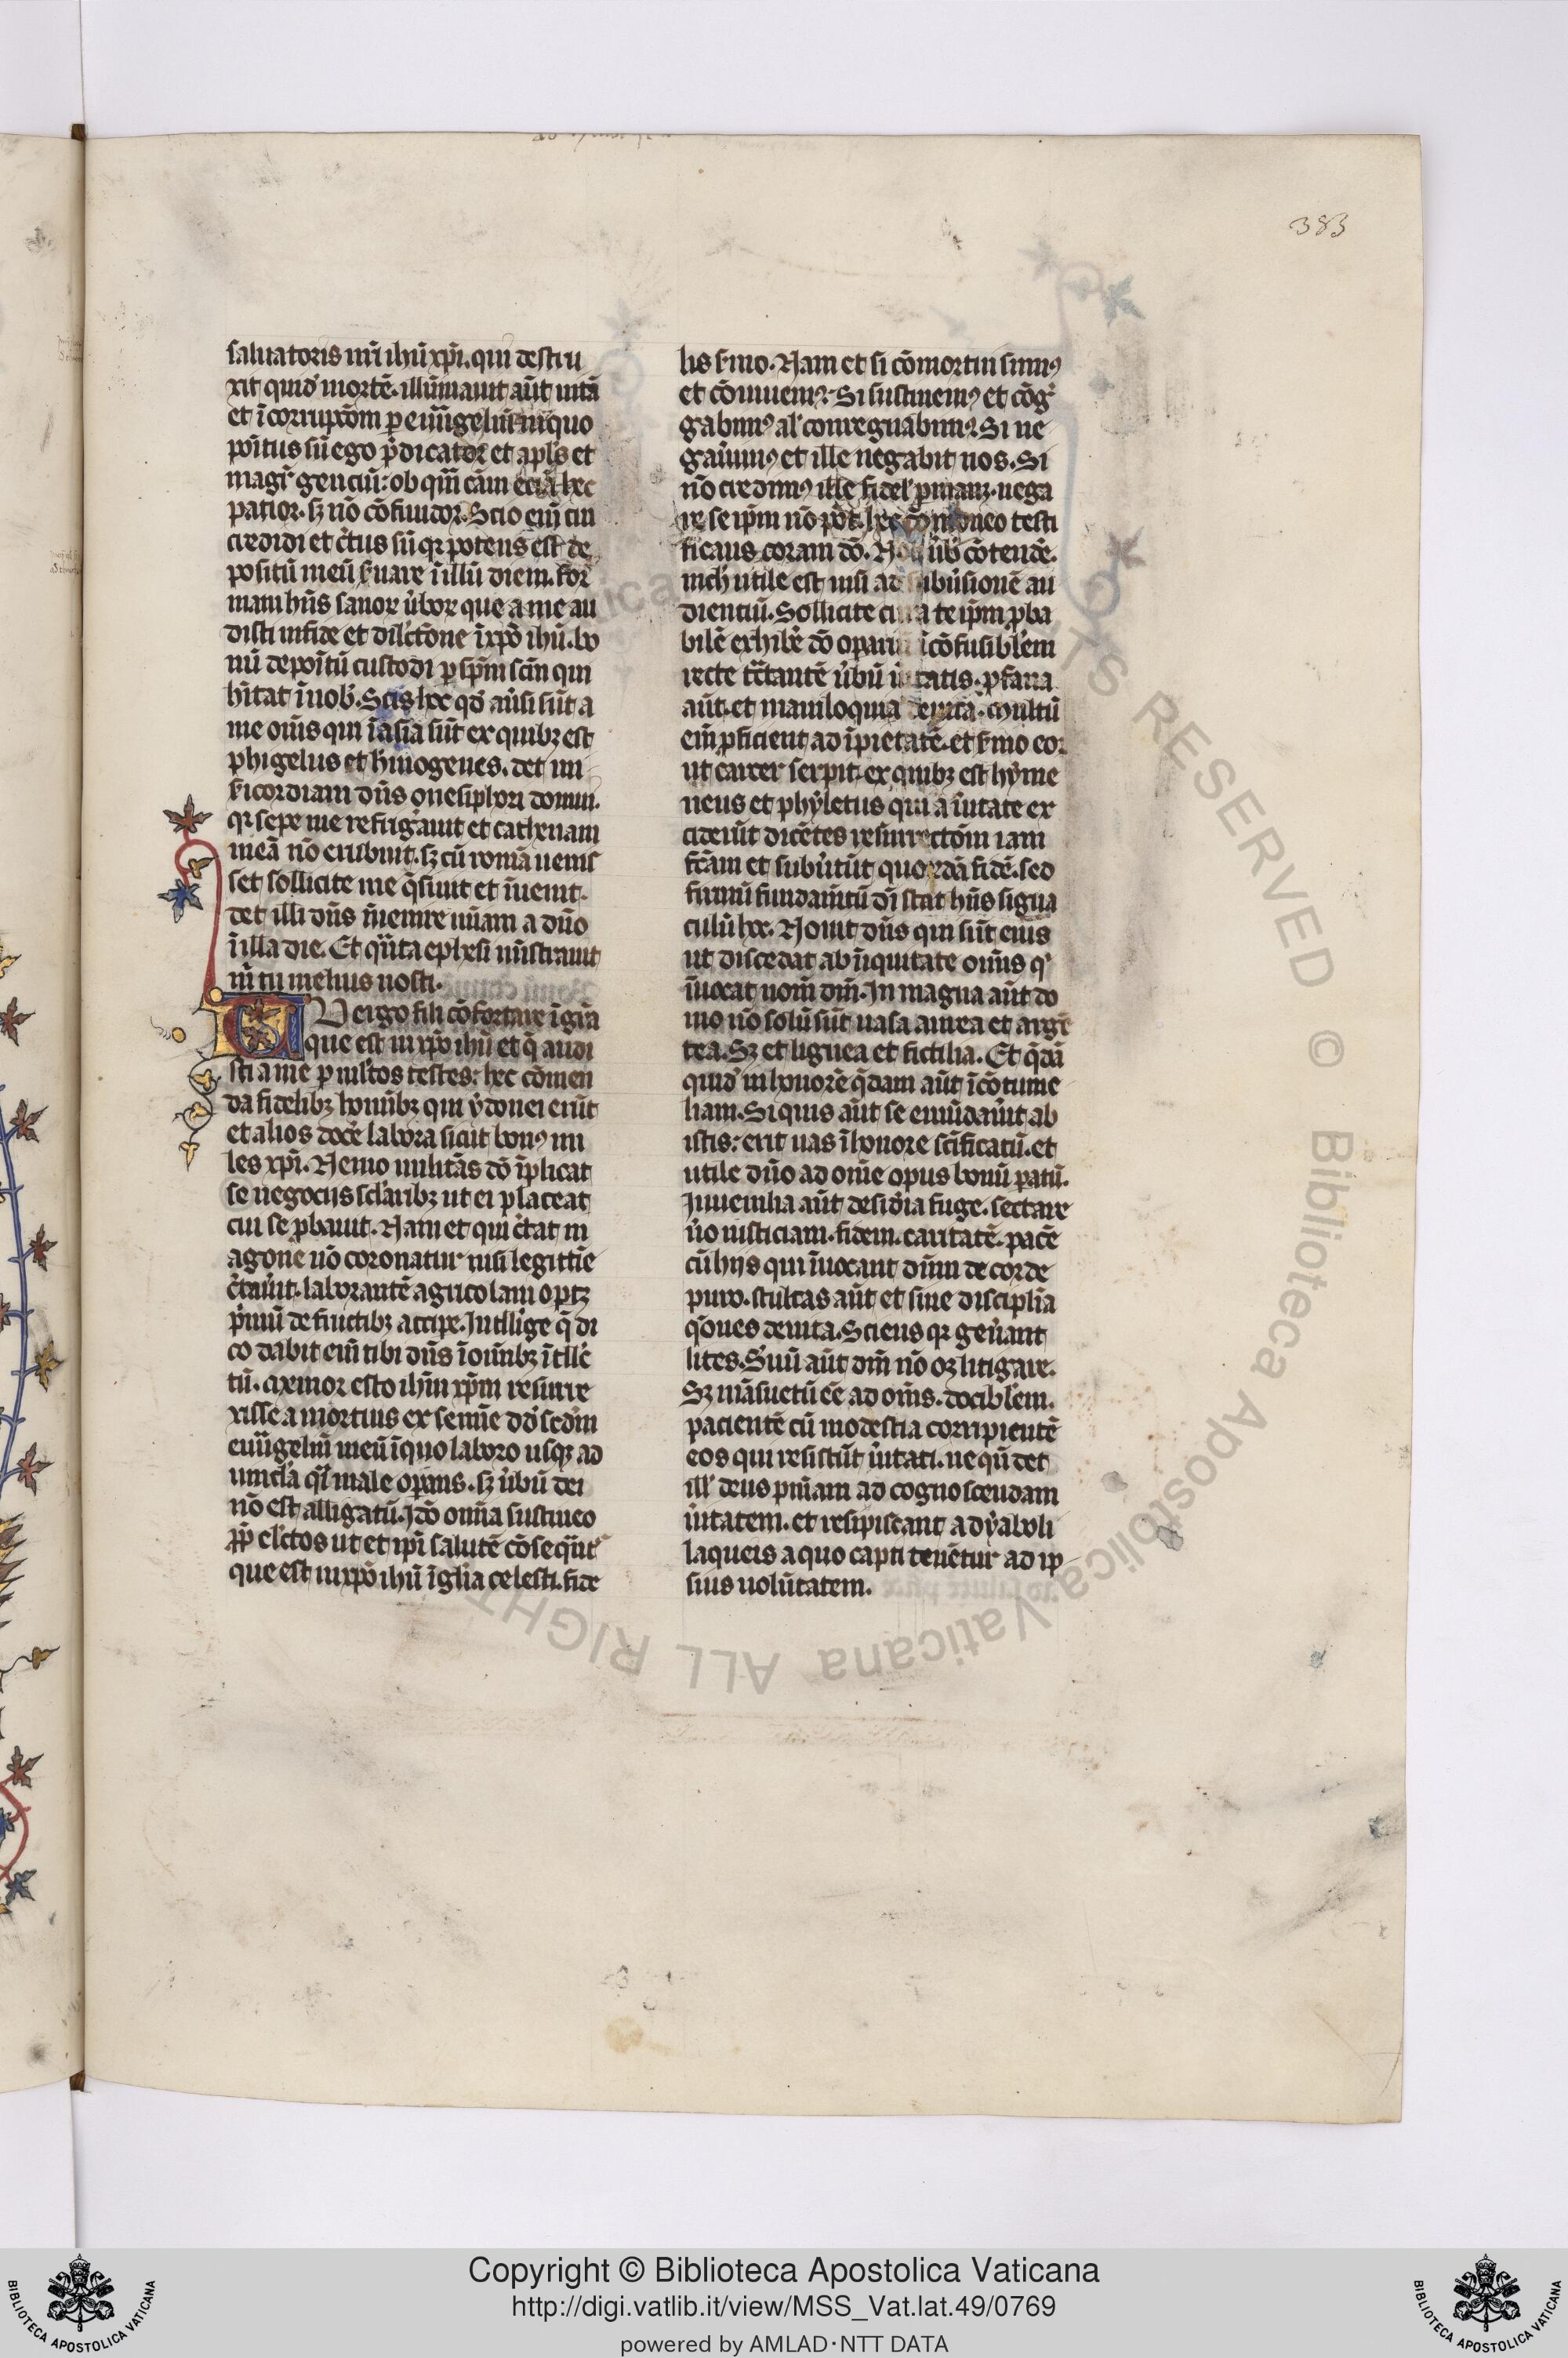 383
saluatoris nr̄i ihū xp̄i. qui destru
xit quid' mortē. illūinauit aūt uitā
et īcorrupc̄om p euūgeliū in quo
poītus sū ego p̄dicator et apl's et
magr̄ genciū: ob qm̄ cām eciā hec
patior. sȝ nō cōfundor. Scio enī cui
credidi et c̄tus sū qr potens est de
positū meū s̄uare ī illū diem. For
mam hn̄s sanor ūbor que a me au
disti in fide et dil'ctōne ī xp̄o ihū. bo
nū depoītū custodi p sp̄m scm̄ qui
hītat ī nob'. Scis hoc qd' aūsi sūt a
me om̄s qui ī asia sūt ex quibȝ est
phigelus et h̄mogenes. det mi
s̄icordiam dn̄s onesiphori domui.
qr sepe me refriḡauit et cathenam
meā nō erubuit. sȝ cū romā uenis
set sollicite me q̄siuit et īuenit.
det illi dn̄s īuenire mīam a dn̄o
ī illa die. Et qn̄ta ephesi mīstrauit
m̄ tu melius nosti.
TU ergo fili cōfortare ī grā
que est in xp̄o ihū et q̄ audi
sti a me p m̄ltos testes: hec cōmen
da fidelibȝ homībȝ qui ydonei erūt
et alios docē labora sicut bon⁹ mi
les xp̄i. Nemo militās dō īplicat
se negociis scl'aribȝ ut ei placeat
cui se pbauit. Nam et qui c̄tat in
agone nō coronatur nisi legittīe
c̄tau̇it. laborantē agricolam optȝ
p̄mū de fructibȝ accipe. Intellige q̄ di
co dabit enī tibi dn̄s ī om̄ibȝ ītll'c
tū. Memor esto ihm̄ xp̄m resurre
xisse a mortuis ex semīe dd' scd'm
euūgeliū meū ī quo laboro usqȝ ad
uincl'a qi male opans. sȝ ūbū dei
nō est alligatū. Idō om̄ia sustineo
pp̄ el'ctos ut et ip̄i salutē cōseqn̄t
que est in xp̄o ihū ī gl'ia celesti. fide
lis s̄mo. Nam et si cōmortui sum⁹
et cōuiuem⁹. Si sustinem⁹ et cōḡ
gabim⁹ al' conregnabim⁹. Si ne
gau̇im⁹ et ille negabit nos. Si
nō credim⁹ ille fidel' pmanȝ. nega
re seip̄m nō pōt. hec cōmoneo testi
ficans coram dō. Noli ūb' cōtendē.
nich' utile est nisi ad subu̇sionē au
dienciū. Sollicite cura te ip̄m pba
bilē exhibē dō oparium īcōfusibl'em
recte tc̄tantē ūbū u̇itatis. pfana
aūt et maniloquia deuita. Multū
enī pficient ad īpietatē. et s̄mo eor
ut cancer serpit. ex quibȝ est hyme
neus et phyletus qui a u̇itate ex
ciderūt dicētes resurrectōm iam
fc̄am et subu̇tūt quordā fidē. sed
firmū fundam̄tū dī stat hn̄s signa
culū hoc. Nouit dn̄s qui sūt eius
ut discedat ab īiquitate om̄is q'
īuocat nom̄ dm̄. In magna aūt do
mo nō solū sūt uasa aurea et argē
tea. Sȝ et lignea et fictilia. Et q̄dā
quid' in honorē q̄dam aūt ī cōtume
liam. Si quis aūt se emūdau̇it ab
istis: erit uas ī honore scīficatū. et
utile dn̄o ad om̄e opus bonū patū.
Iuuenilia aūt desid'ia fuge. sectare
u̇o iusticiam. fidem. caritatē. pacē
cū hijs qui īuocant dn̄m de corde
puro. stultas aūt et sine disciplīa
q̄ones deuita. Sciens qr gen̄ant
lites. S̄uū aūt dm̄ nō oȝ litigare.
Sȝ māsuetū eē ad om̄s. docibl'em.
pacientē cū modestia corripientē
eos qui resistūt u̇itati. ne qn̄ det
ill' deus pn̄iam ad cognoscendam
u̇itatem. et resipiscant a dyaboli
laqueis a quo capti tenētur ad ip
sius uolūtatem.
Copyright © Biblioteca Apostolica Vaticana
http://digi.vatlib.it/view/MSS_Vat.lat.49/0769
powered by AMLAD·NTT DATA
BIBLIOTECA APOSTOLICA VATICANA
BIBLIOTECA APOSTOLICA VATICANA
ALL RIGHTS RESERVED © Biblioteca Apostolica Vaticana